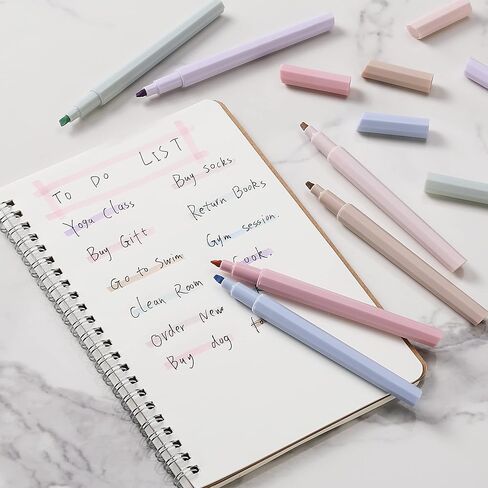 To Do LIST
Yoga Class
Buy Gift
Go to Swim
Clean Room
Order New
Buy dog
Buy socks
Return Books
Gym session.
Cook.